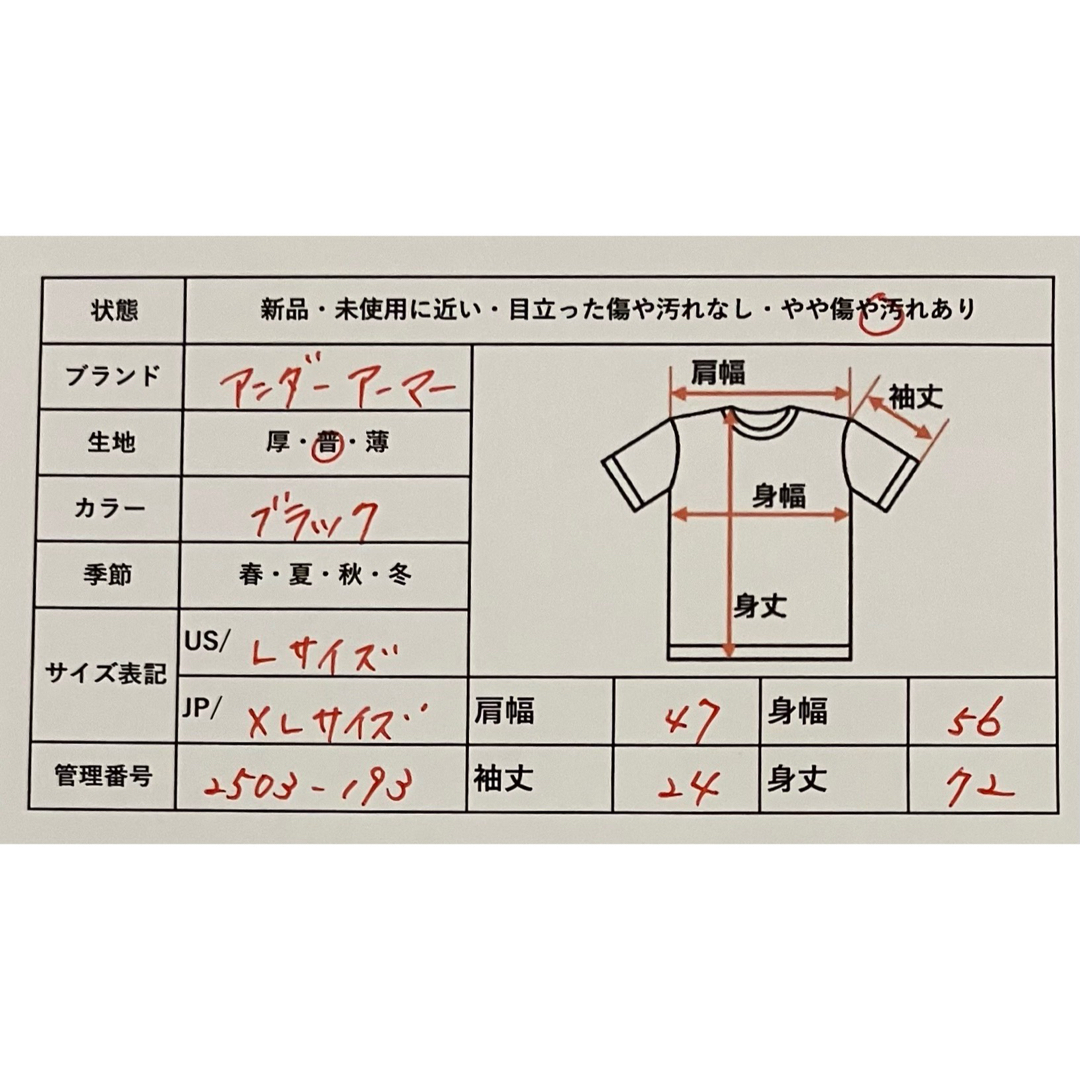 状態 新品・未使用に近い・目立った傷や汚れなし・やや傷や汚れあり
ブランド アンダーアーマー
生地 厚・普・薄
カラー ブラック
季節 春・夏・秋・冬
サイズ表記
US/ Lサイズ
JP/ XLサイズ
管理番号 2503-193
肩幅
袖丈
身幅
身丈
肩幅 47 身幅 56
袖丈 24 身丈 72